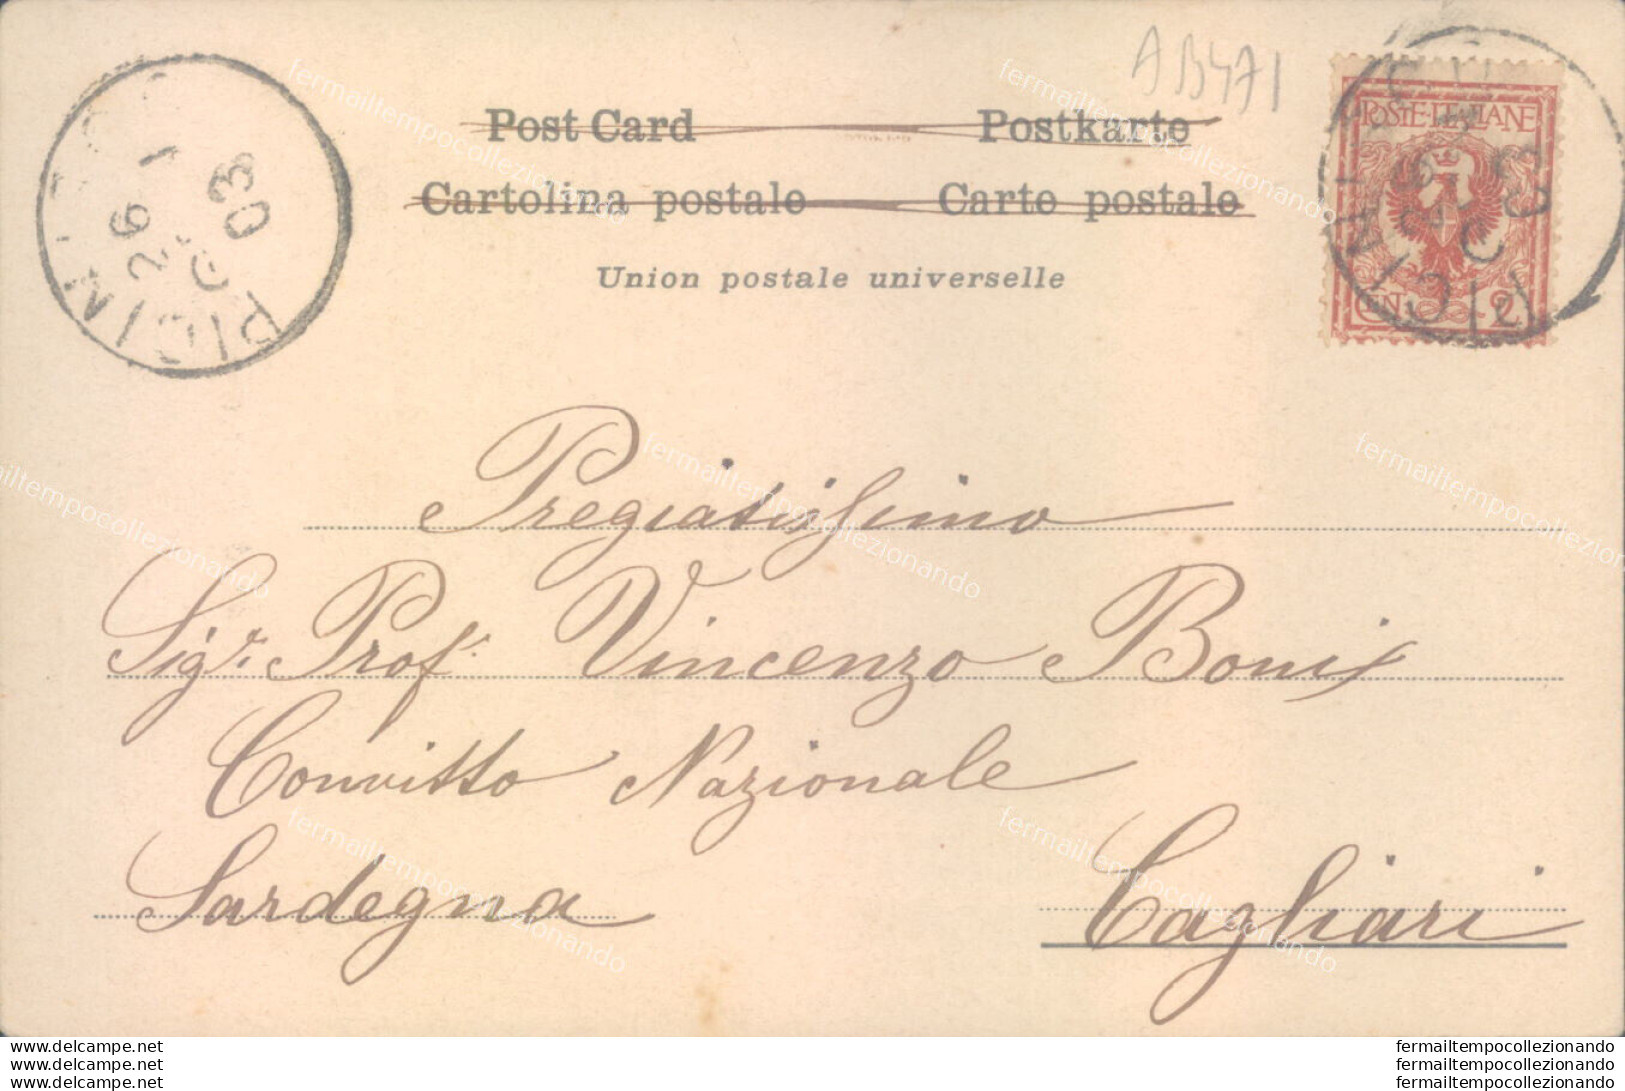 A B471
Post Card Postkarte
Cartolina postale Carte postale
Union postale universelle
26 1
03
POSTE ITALIANE
CEN. 2
Pregiatissimo
Sigr. Prof. Vincenzo Bonix
Convitto Nazionale
Sardegna Cagliari
fermailtempocollezionando
www.delcampe.net fermailtempocollezionando
www.delcampe.net fermailtempocollezionando
www.delcampe.net fermailtempocollezionando